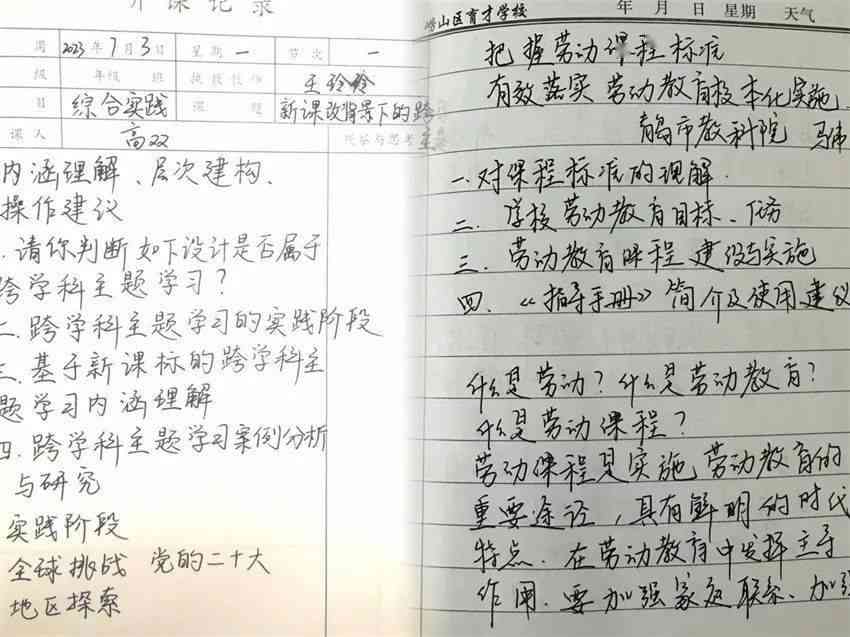 听课记录
周 2023年7月3日 星期 一 节次 一
级 年级 班 执教教师 王玲玲
目 综合实践 课题 新课改背景下的跨
课人 高双
内涵理解、层次建构、
操作建议
.请你判断如下设计是否属于
跨学科主题学习？
二.跨学科主题学习的实践阶段
三.基于新课标的跨学科主
题学习内涵理解
四.跨学科主题学习案例分析
与研究
实践阶段
全球挑战 党的二十大
地区探索
崂山区育才学校 年 月 日 星期 天气
把握劳动课程标准
有效落实劳动教育校本化实施
青岛市教科院 马
一.对课程标准的理解.
二.学校劳动教育目标、任务
三.劳动教育课程建设与实施
四.《指导手册》简介及使用建议
什么是劳动？什么是劳动教育？
什么是劳动课程？
劳动课程是实施劳动教育的
重要途径，具有鲜明的时代
特点.在劳动教育中发挥主导
作用.要加强家庭联系、加强